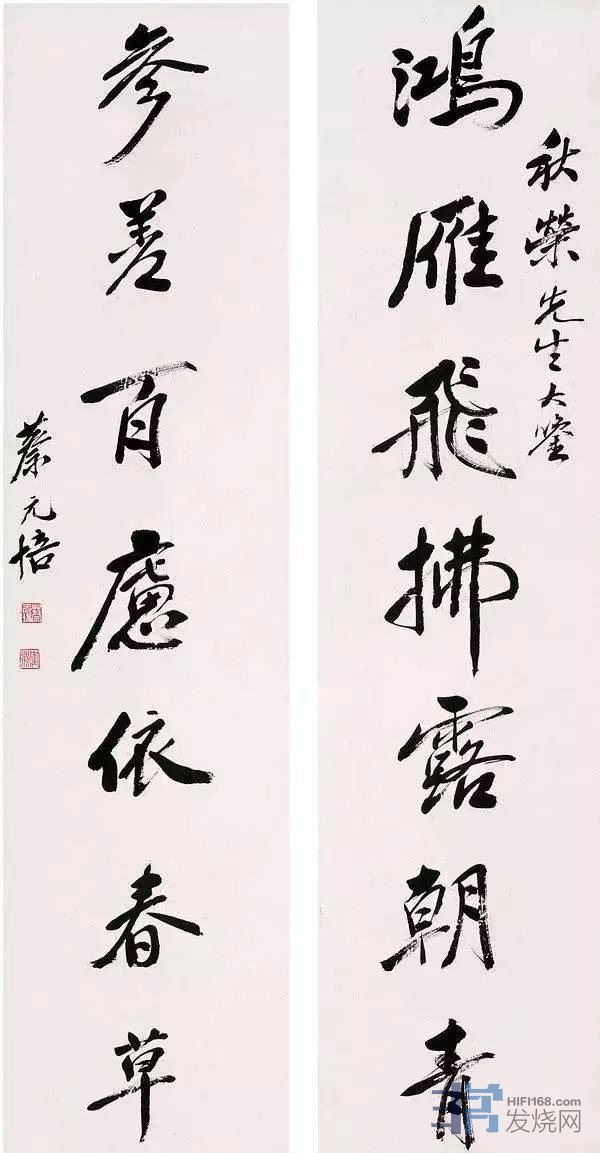 秋榮先生大鑒
鴻雁飛拂露朝青
参差百慮依春草
蔡元培
HIFI168.com
发烧网